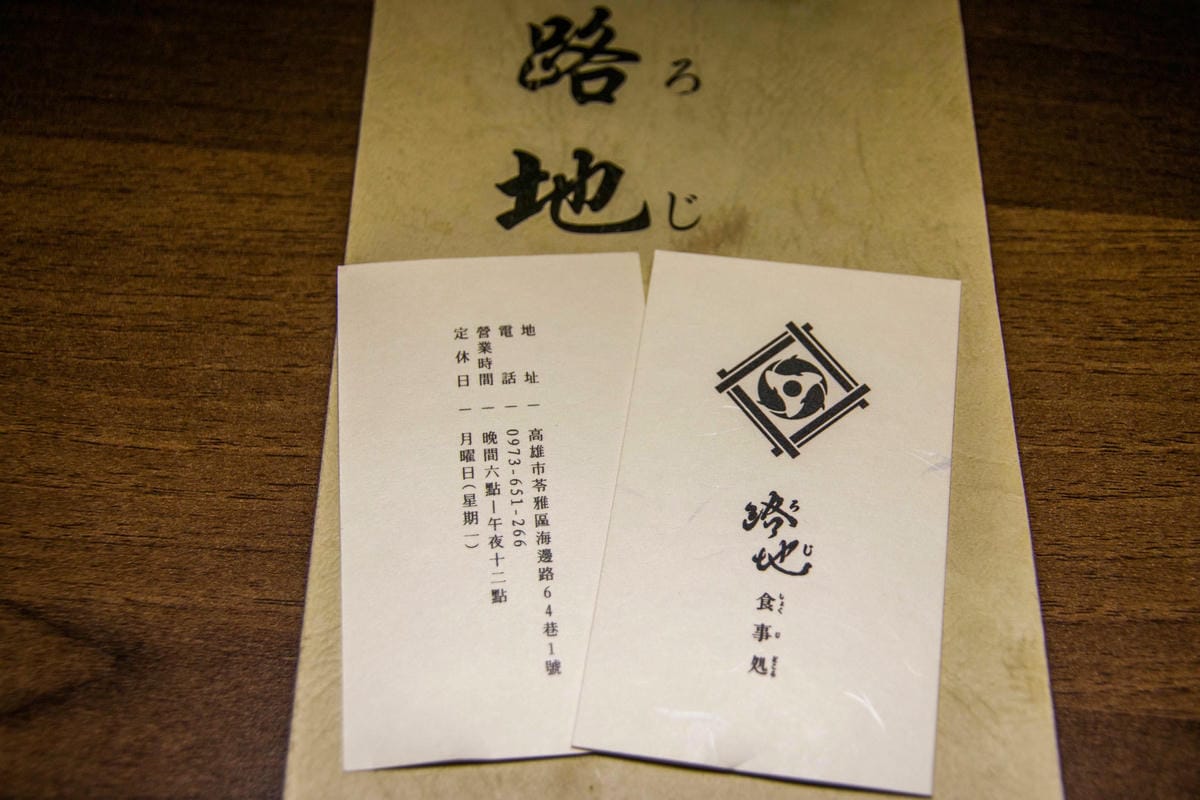 路地
ろじ
地址 — 高雄市苓雅區海邊路64巷1號
電話 — 0973-651-266
營業時間 — 晚間六點—午夜十二點
定休日 — 月曜日(星期一)
路地
ろじ
食事処
しょくじどころ